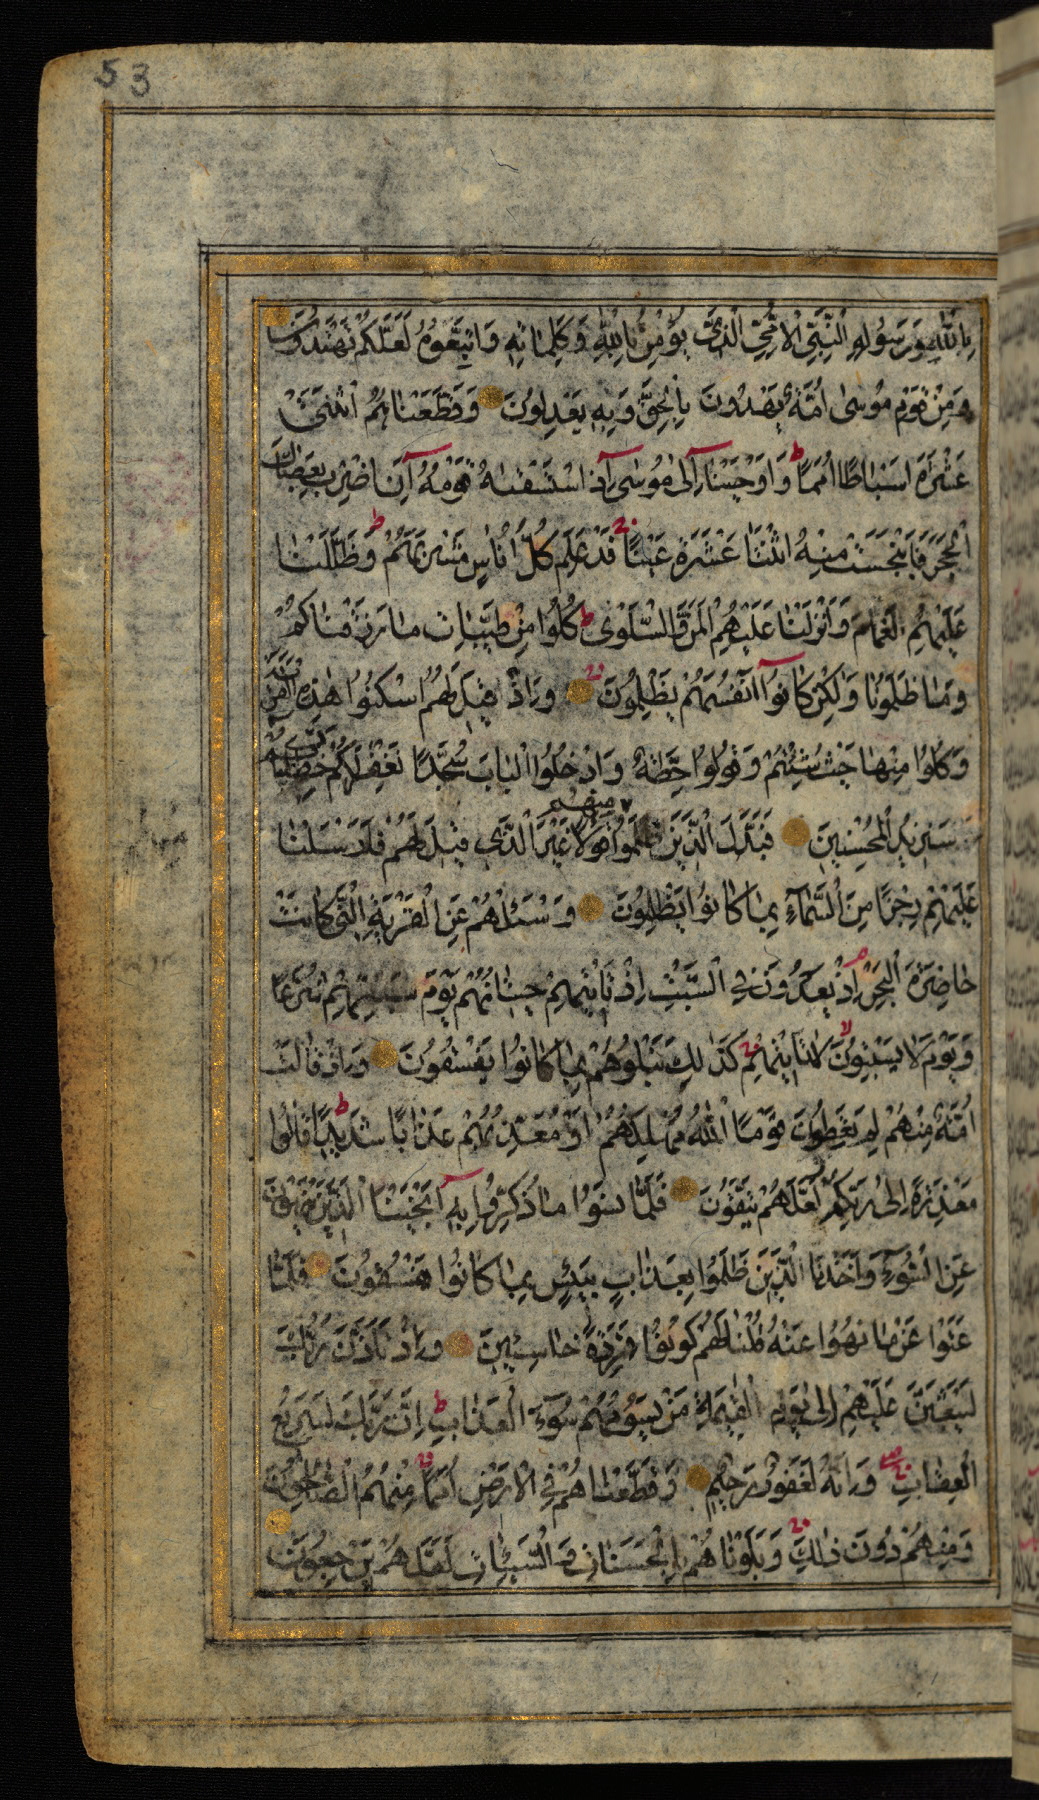 53
بِاللّٰهِ وَرَسُولِهِ النَّبِيِّ الْاُمِّيِّ الَّذِي يُؤْمِنُ بِاللّٰهِ وَكَلِمَاتِهِ وَاتَّبِعُوهُ لَعَلَّكُمْ تَهْتَدُونَ
وَمِنْ قَوْمِ مُوسٰى اُمَّةٌ يَهْدُونَ بِالْحَقِّ وَبِهِ يَعْدِلُونَ وَقَطَّعْنَاهُمُ اثْنَتَيْ
عَشْرَةَ اَسْبَاطًا اُمَمًا ط وَاَوْحَيْنَا اِلٰى مُوسٰى اِذِ اسْتَسْقٰىهُ قَوْمُهُ اَنِ اضْرِبْ بِعَصَاكَ
الْحَجَرَ فَانْبَجَسَتْ مِنْهُ اثْنَتَا عَشْرَةَ عَيْنًا قَدْ عَلِمَ كُلُّ اُنَاسٍ مَشْرَبَهُمْ ط وَظَلَّلْنَا
عَلَيْهِمُ الْغَمَامَ وَاَنْزَلْنَا عَلَيْهِمُ الْمَنَّ وَالسَّلْوٰى ط كُلُوا مِنْ طَيِّبَاتِ مَا رَزَقْنَاكُمْ
وَمَا ظَلَمُونَا وَلٰكِنْ كَانُوا اَنْفُسَهُمْ يَظْلِمُونَ وَاِذْ قِيلَ لَهُمُ اسْكُنُوا هٰذِهِ الْقَرْيَةَ
وَكُلُوا مِنْهَا حَيْثُ شِئْتُمْ وَقُولُوا حِطَّةٌ وَادْخُلُوا الْبَابَ سُجَّدًا نَغْفِرْ لَكُمْ خَطِيئَاتِكُمْ
سَنَزِيدُ الْمُحْسِنِينَ فَبَدَّلَ الَّذِينَ ظَلَمُوا مِنْهُمْ قَوْلًا غَيْرَ الَّذِي قِيلَ لَهُمْ فَاَرْسَلْنَا
عَلَيْهِمْ رِجْزًا مِنَ السَّمَآءِ بِمَا كَانُوا يَظْلِمُونَ وَسْئَلْهُمْ عَنِ الْقَرْيَةِ الَّتِي كَانَتْ
حَاضِرَةَ الْبَحْرِ اِذْ يَعْدُونَ فِي السَّبْتِ اِذْ تَأْتِيهِمْ حِيتَانُهُمْ يَوْمَ سَبْتِهِمْ شُرَّعًا
وَيَوْمَ لَا يَسْبِتُونَ لا لَا تَأْتِيهِمْ كَذٰلِكَ نَبْلُوهُمْ بِمَا كَانُوا يَفْسُقُونَ وَاِذْ قَالَتْ
اُمَّةٌ مِنْهُمْ لِمَ تَعِظُونَ قَوْمًا اللّٰهُ مُهْلِكُهُمْ اَوْ مُعَذِّبُهُمْ عَذَابًا شَدِيدًا ط قَالُوا
مَعْذِرَةً اِلٰى رَبِّكُمْ لَعَلَّهُمْ يَتَّقُونَ فَلَمَّا نَسُوا مَا ذُكِّرُوا بِهِ اَنْجَيْنَا الَّذِينَ يَنْهَوْنَ
عَنِ السُّوٓءِ وَاَخَذْنَا الَّذِينَ ظَلَمُوا بِعَذَابٍ بَئِيسٍ بِمَا كَانُوا يَفْسُقُونَ فَلَمَّا
عَتَوْا عَنْ مَا نُهُوا عَنْهُ قُلْنَا لَهُمْ كُونُوا قِرَدَةً خَاسِئِينَ وَاِذْ تَاَذَّنَ رَبُّكَ
لَيَبْعَثَنَّ عَلَيْهِمْ اِلٰى يَوْمِ الْقِيٰمَةِ مَنْ يَسُومُهُمْ سُوٓءَ الْعَذَابِ ط اِنَّ رَبَّكَ لَسَرِيعُ
الْعِقَابِ وَاِنَّهُ لَغَفُورٌ رَحِيمٌ وَقَطَّعْنَاهُمْ فِي الْاَرْضِ اُمَمًا مِنْهُمُ الصَّالِحُونَ
وَمِنْهُمْ دُونَ ذٰلِكَ وَبَلَوْنَاهُمْ بِالْحَسَنَاتِ وَالسَّيِّئَاتِ لَعَلَّهُمْ يَرْجِعُونَ